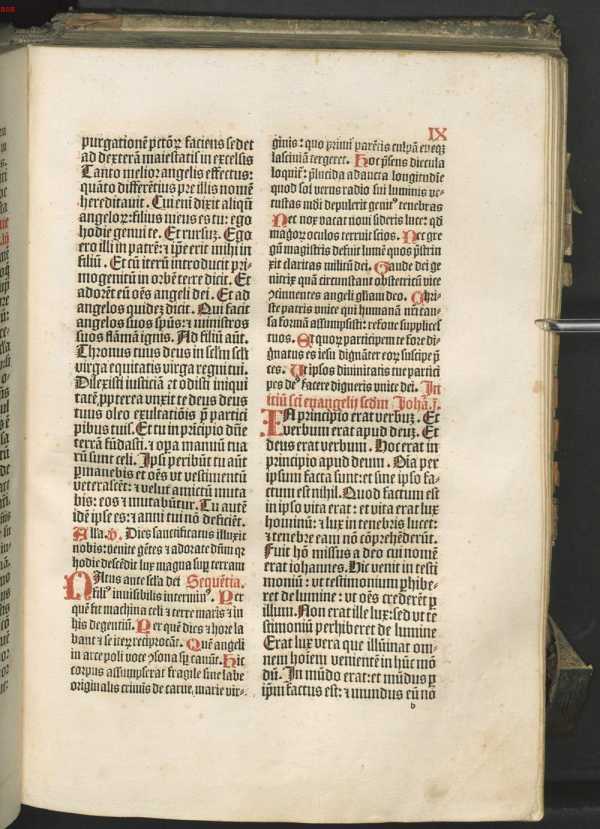 IX
purgationē pctōꝝ faciens sedet
ad dexterā maiestatis in excelsis
Tanto melior angelis effectus:
quāto differētius pre illis nomē
hereditauit. Cui eni dixit aliqñ
angeloꝝ: filius meus es tu: ego
hodie genui te. Et rursuꝫ. Ego
ero illi in patrē: ⁊ ip̄e erit mihi in
filiū. Et cū iterū introducit pri
mogenitū in orbē terre dicit. Et
adorēt eū oēs angeli dei. Et ad
angelos quideꝫ dicit. Qui facit
angelos suos spūs: ⁊ ministros
suos flāmā ignis. Ad filiū aūt.
Thronus tuus deus in sclm̄ scli
virga equitatis virga regni tui.
Dilexisti iusticiā et odisti iniqui
tatē. ꝓpterea vnxit te deus deus
tuus oleo exultatiōis p̄ partici
pibus tuis. Et tu in prīcipio dūe
terrā fūdasti: ⁊ oꝑa manuū tua
rū sunt celi. Ipsi peribūt tu aūt
ꝑmanebis et oēs vt vestimentū
veterascēt: ⁊ velut amictū muta
bis: eos ⁊ mutabūtur. Tu autē
idē ipse es: ⁊ anni tui nō deficiēt.
Alla. v. Dies sanctificatus illuxit
nobis: venite gētes ⁊ adorate dn̄m qꝛ
hodie descēdit lux magna suꝑ terram
Natus ante secla dei Sequētia.
fili⁹ inuisibilis interminꝰ. Per
quē fit machina celi ⁊ terre maris ⁊ in
his degentiū. Per quē dies ⁊ hore la
bant ⁊ se iteꝝ reciprocāt. Quē angeli
in arce poli voce ↄsona sp̄ canūt. Hic
corpus assumpserat fragile sine labe
originalis crimīs de carne marie vir⸗
ginis: quo primi parētis culpā eueqꝫ
lasciuiā tergeret. Hoc p̄sens diecula
loquit᷑: p̄lucida adaucta longitudīe
quod sol verus radio sui luminis ve⸗
tustas mūdi depulerit genit⁹ tenebras
Nec nox vacat noui sideris luce: qd̄
magoꝝ oculos terruit scios. Nec gre
gū magistris defuit lumē quos p̄strin
xit claritas militū dei. Gaude dei ge
nitrix quā circunstant obstetricū vice
ↄcinnentes angeli gl̄iam deo. Chri⸗
ste patris vnice qui humanā nr̄i cau⸗
sa formā assumpsisti: refoue supplices
tuos. Et quoꝝ participem te fore di⸗
gnatus es iesu dignāter eoꝝ suscipe p̄
ces. Ut ipsos diuinitatis tue partici
pes de⁹ facere digneris vnice dei. Ini
itiū sc̄i euangelij scdm̄ Johā. j.
IN principio erat verbuꝫ. Et
verbum erat apud deuꝫ. Et
deus erat verbum. Hoc erat in
principio apud deum. Oīa per
ipsum facta sunt: et sine ipso fa⸗
ctum est nihil. Quod factum est
in ipso vita erat: et vita erat lux
hominū: ⁊ lux in tenebris lucet:
⁊ tenebre eam nō cōprehēderūt.
Fuit hō missus a deo cui nomē
erat iohannes. Hic venit in testi
moniū: vt testimonium ꝑhibe⸗
ret de lumine: vt oēs crederēt ꝑ
illum. Non erat ille lux: sed vt te
stimoniū perhiberet de lumine
Erat lux vera que illūinat om⸗
nem hoīem venientē in hūc mō
dū. In mūdo erat: et mūdus ꝑ
ip̄m factus est: ⁊ mundus eū nō
b